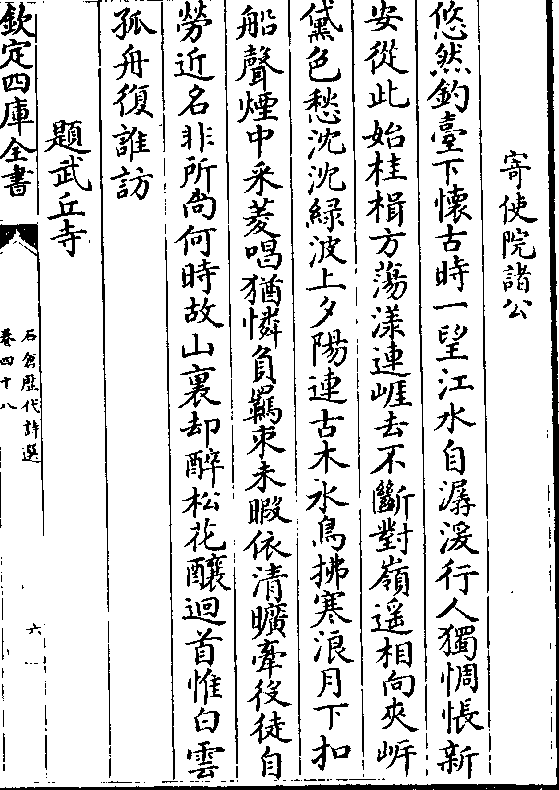 寄使院諸公
悠然釣臺下懷古時一望江水自潺湲行人獨惆悵新
安從此始桂楫方蕩漾連崖去不斷對嶺遥相向夾㟁
黛色愁沈沈綠波上夕陽連古木水鳥拂寒浪月下扣
船聲煙中采菱唱猶憐負羈束未暇依清曠牽役徒自
勞近名非所尚何時故山裏却醉松花釀迴首惟白雲
孤舟復誰訪
題武丘寺
欽定四庫全書
石倉歷代詩選
卷四十八
六